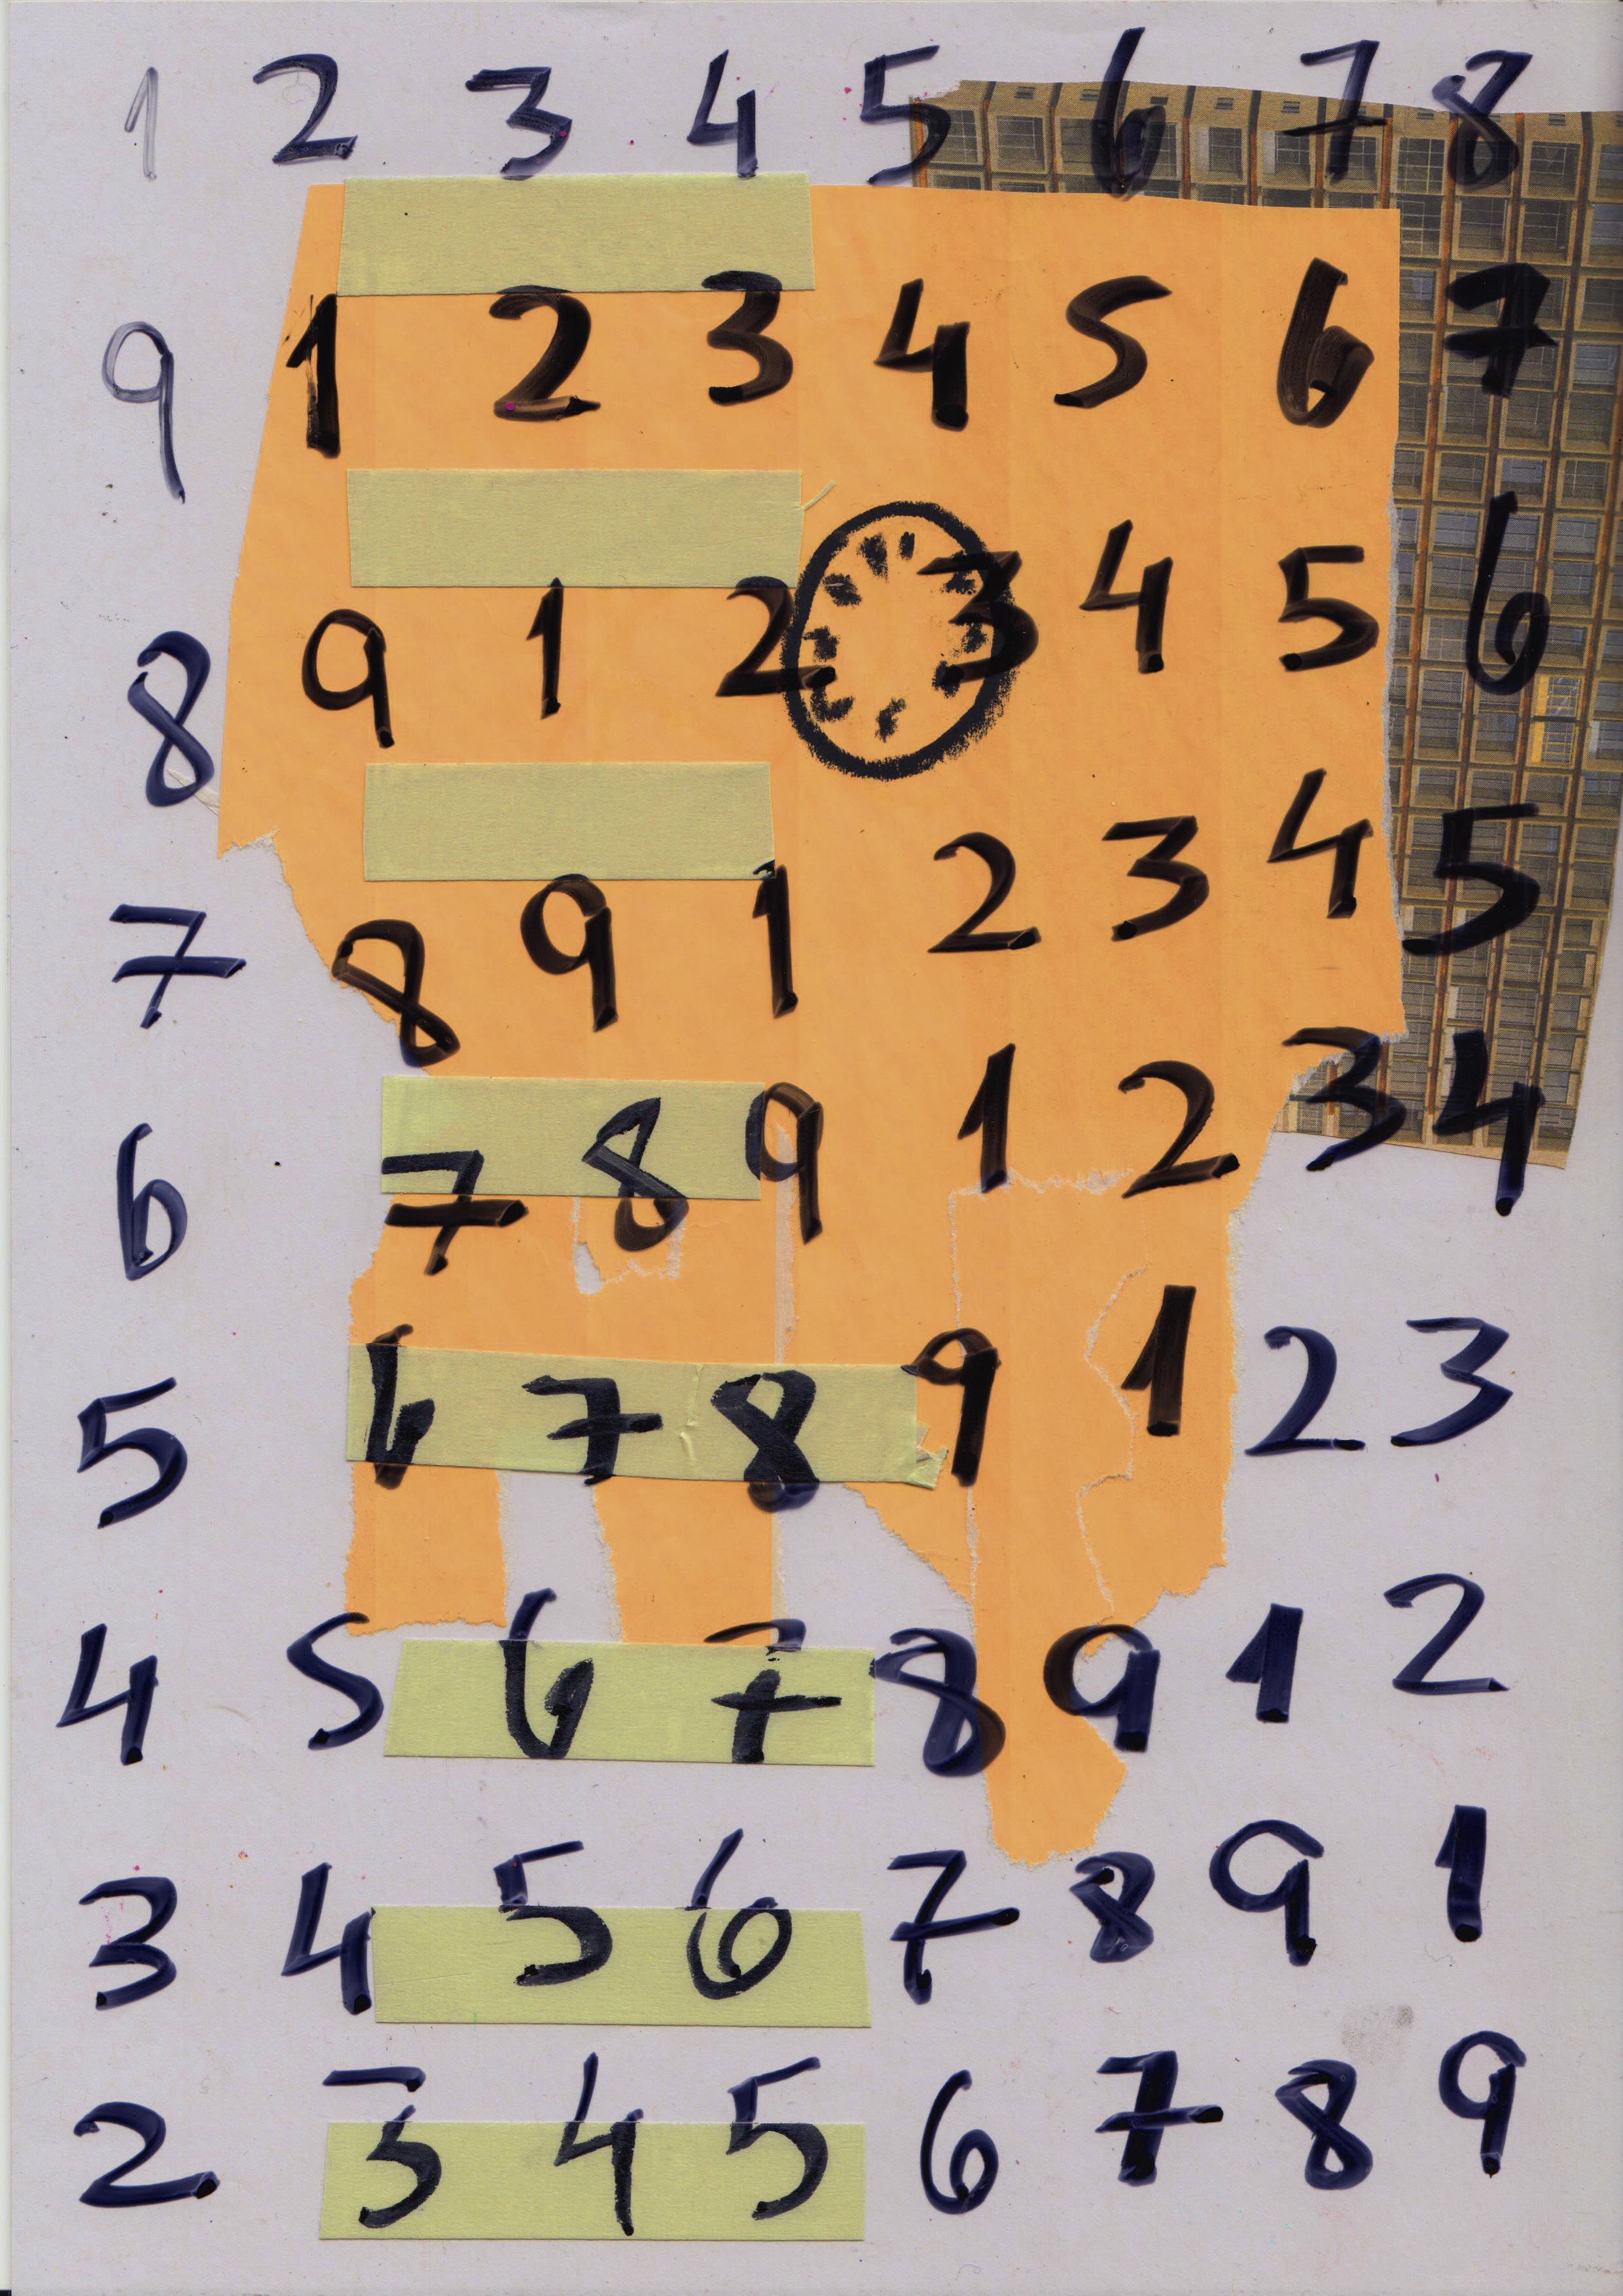 1 2 3 4 5 6 7 8
9 1 2 3 4 5 6 7
8 9 1 2 3 4 5 6
7 8 9 1 2 3 4 5
6 7 8 9 1 2 3 4
5 6 7 8 9 1 2 3
4 5 6 7 8 9 1 2
3 4 5 6 7 8 9 1
2 3 4 5 6 7 8 9